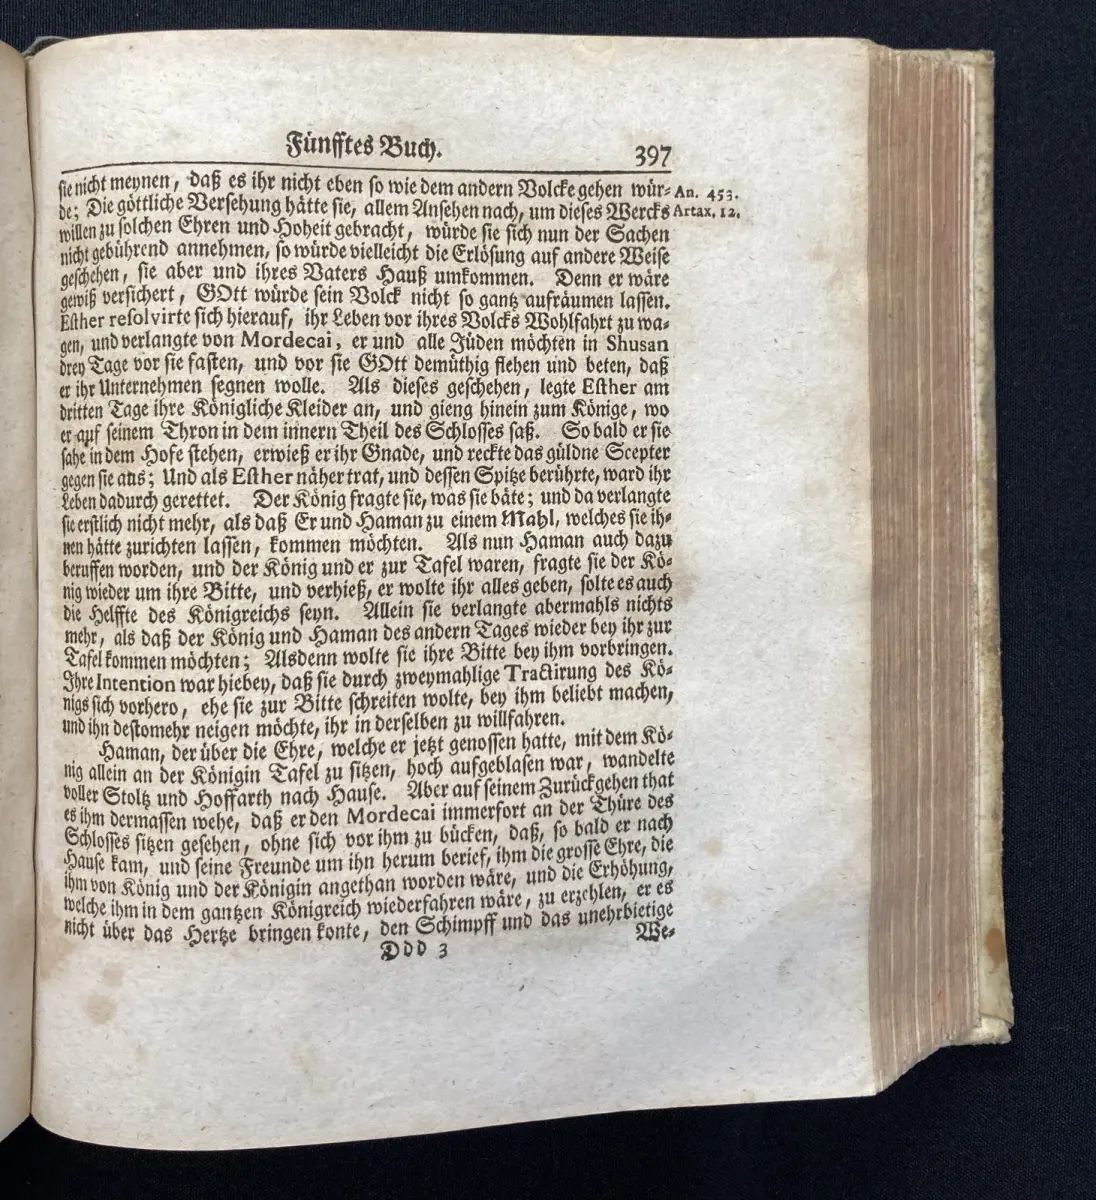 Fünfftes Buch.
397
sie nicht meynen, daß es ihr nicht eben so wie dem andern Volcke gehen wür-
An. 453.
de; Die göttliche Versehung hätte sie, allem Ansehen nach, um dieses Wercks
Artax. 12.
willen zu solchen Ehren und Hoheit gebracht, würde sie sich nun der Sachen
nicht gebührend annehmen, so würde vielleicht die Erlösung auf andere Weise
geschehen, sie aber und ihres Vaters Hauß umkommen. Denn er wäre
gewiß versichert, GOtt würde sein Volck nicht so gantz aufräumen lassen.
Esther resolvirte sich hierauf, ihr Leben vor ihres Volcks Wohlfahrt zu wa-
gen, und verlangte von Mordecai, er und alle Jüden möchten in Shusan
drey Tage vor sie fasten, und vor sie GOtt demüthig flehen und beten, daß
er ihr Unternehmen segnen wolle. Als dieses geschehen, legte Esther am
dritten Tage ihre Königliche Kleider an, und gieng hinein zum Könige, wo
er auf seinem Thron in dem innern Theil des Schlosses saß. So bald er sie
sahe in dem Hofe stehen, erwieß er ihr Gnade, und reckte das güldne Scepter
gegen sie aus; Und als Esther näher trat, und dessen Spitze berührte, ward ihr
Leben dadurch gerettet. Der König fragte sie, was sie bäte; und da verlangte
sie erstlich nicht mehr, als daß Er und Haman zu einem Mahl, welches sie ih-
nen hätte zurichten lassen, kommen möchten. Als nun Haman auch dazu
beruffen worden, und der König und er zur Tafel waren, fragte sie der Kö-
nig wieder um ihre Bitte, und verhieß, er wolte ihr alles geben, solte es auch
die Helffte des Königreichs seyn. Allein sie verlangte abermahls nichts
mehr, als daß der König und Haman des andern Tages wieder bey ihr zur
Tafel kommen möchten; Alsdenn wolte sie ihre Bitte bey ihm vorbringen.
Ihre Intention war hiebey, daß sie durch zweymahlige Tractirung des Kö-
nigs sich vorhero, ehe sie zur Bitte schreiten wolte, bey ihm beliebt machen,
und ihn destomehr neigen möchte, ihr in derselben zu willfahren.
Haman, der über die Ehre, welche er jetzt genossen hatte, mit dem Kö-
nig allein an der Königin Tafel zu sitzen, hoch aufgeblasen war, wandelte
voller Stoltz und Hoffarth nach Hause. Aber auf seinem Zurückgehen that
es ihm dermassen wehe, daß er den Mordecai immerfort an der Thüre des
Schlosses sitzen gesehen, ohne sich vor ihm zu bücken, daß, so bald er nach
Hause kam, und seine Freunde um ihn herum berief, ihm die grosse Ehre, die
ihm von König und der Königin angethan worden wäre, und die Erhöhung,
welche ihm in dem gantzen Königreich wiederfahren wäre, zu erzehlen, er es
nicht über das Hertze bringen konte, den Schimpff und das unehrbietige
We-
Ddd 3